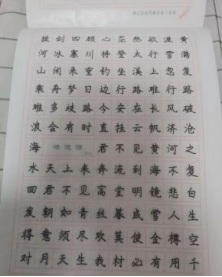 拔剑四顾心茫然欲渡黄
河冰塞川将登太行雪满
山闲来垂钓碧溪上忽复
乘舟梦日边行路难行路
难多歧路今安在长风破
浪会有时直挂云帆济沧
海 将进酒 君不见黄河之
水天上来奔流到海不复
回君不见高堂明镜悲白
发朝如青丝暮成雪人生
得意须尽欢莫使金樽空
对月天生我材必有用千